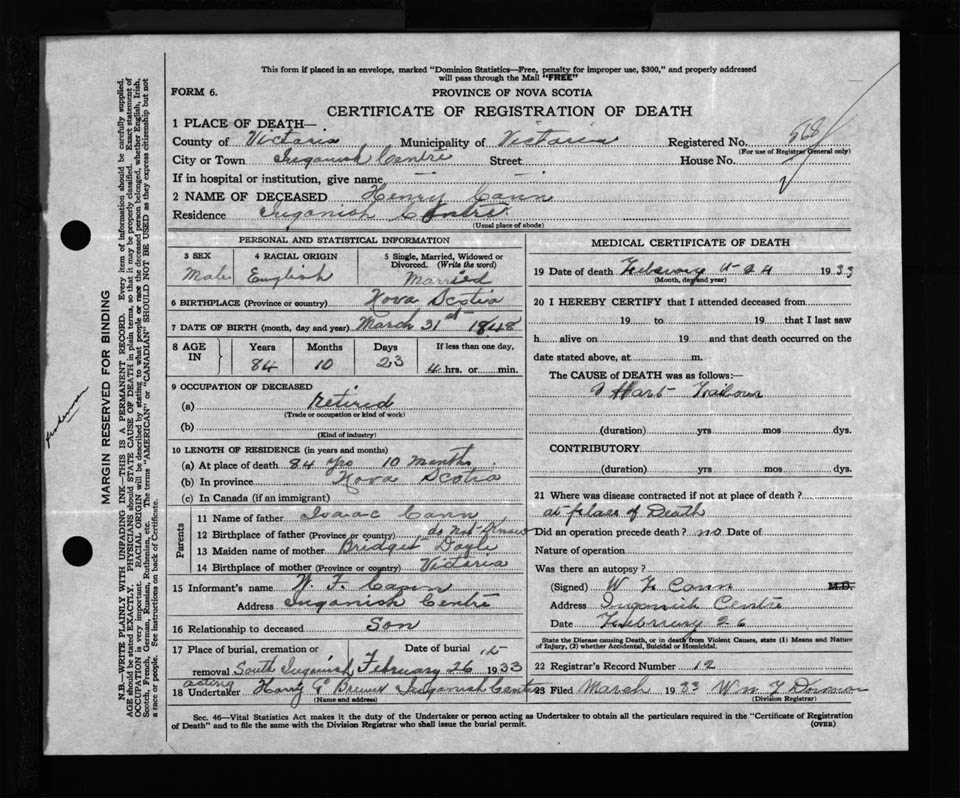 This form if placed in an envelope, marked "Dominion Statistics—Free, penalty for improper use, $300," and properly addressed
will pass through the Mail "FREE"
FORM 6.
PROVINCE OF NOVA SCOTIA
CERTIFICATE OF REGISTRATION OF DEATH
1 PLACE OF DEATH—
County of Victoria Municipality of Victoria Registered No. 568
(For use of Registrar General only)
City or Town Inganish Centre Street House No.
If in hospital or institution, give name
2 NAME OF DECEASED Henry Cann
Residence Inganish Centre
(Usual place of abode)
PERSONAL AND STATISTICAL INFORMATION
3 SEX Male
4 RACIAL ORIGIN English
5 Single, Married, Widowed or Divorced. (Write the word) Married
6 BIRTHPLACE (Province or country) Nova Scotia
7 DATE OF BIRTH (month, day and year) March 31st 1848
8 AGE IN Years 84 Months 10 Days 23 If less than one day, 4 hrs. or min.
9 OCCUPATION OF DECEASED
(a) Retired
(Trade or occupation or kind of work)
(b)
(Kind of industry)
10 LENGTH OF RESIDENCE (in years and months)
(a) At place of death 84 yrs 10 Months
(b) In province Nova Scotia
(c) In Canada (if an immigrant)
Parents
11 Name of father Isaac Cann
12 Birthplace of father (Province or country) do not Know
13 Maiden name of mother Bridget Doyle
14 Birthplace of mother (Province or country) Victoria
15 Informant's name W. F. Cann
Address Inganish Centre
16 Relationship to deceased Son
17 Place of burial, cremation or Date of burial
removal South Inganish February 26 1933
acting
18 Undertaker Harry Inganish Centre
(Name and address)
MEDICAL CERTIFICATE OF DEATH
19 Date of death 1933
(Month, day and year)
20 I HEREBY CERTIFY that I attended deceased from
19 to 19 that I last saw
h alive on 19 and that death occurred on the
date stated above, at m.
The CAUSE of DEATH was as follows:—
Hart
(duration) yrs mos dys.
CONTRIBUTORY
(duration) yrs mos dys.
21 Where was disease contracted if not at place of death?
at place of Death
Did an operation precede death? no Date of
Nature of operation
Was there an autopsy?
(Signed) W F Cann M.D.
Address Ingonish Centre
Date February 26
State the Disease causing Death, or in death from Violent Causes, state (1) Means and Nature
of Injury, (2) whether Accidental, Suicidal or Homicidal.
22 Registrar's Record Number 12
23 Filed March 1933 Wm
(Division Registrar)
Sec. 46—Vital Statistics Act makes it the duty of the Undertaker or person acting as Undertaker to obtain all the particulars required in the "Certificate of Registration
of Death" and to file the same with the Division Registrar who shall issue the burial permit.
(OVER)
MARGIN RESERVED FOR BINDING
N.B.—WRITE PLAINLY WITH UNFADING INK—THIS IS A PERMANENT RECORD. Every item of information should be carefully supplied.
AGE should be stated EXACTLY. PHYSICIANS should STATE CAUSE OF DEATH in plain terms, so that it may be properly classified. Exact statement of
OCCUPATION is very important. RACIAL ORIGIN will be described by stating to what people or race the deceased person belonged, whether English, Irish,
Scotch, French, German, Russian, Ruthenian, etc. The terms "AMERICAN" or "CANADIAN" SHOULD NOT BE USED as they express citizenship but not
a race or people. See instructions on back of Certificate.